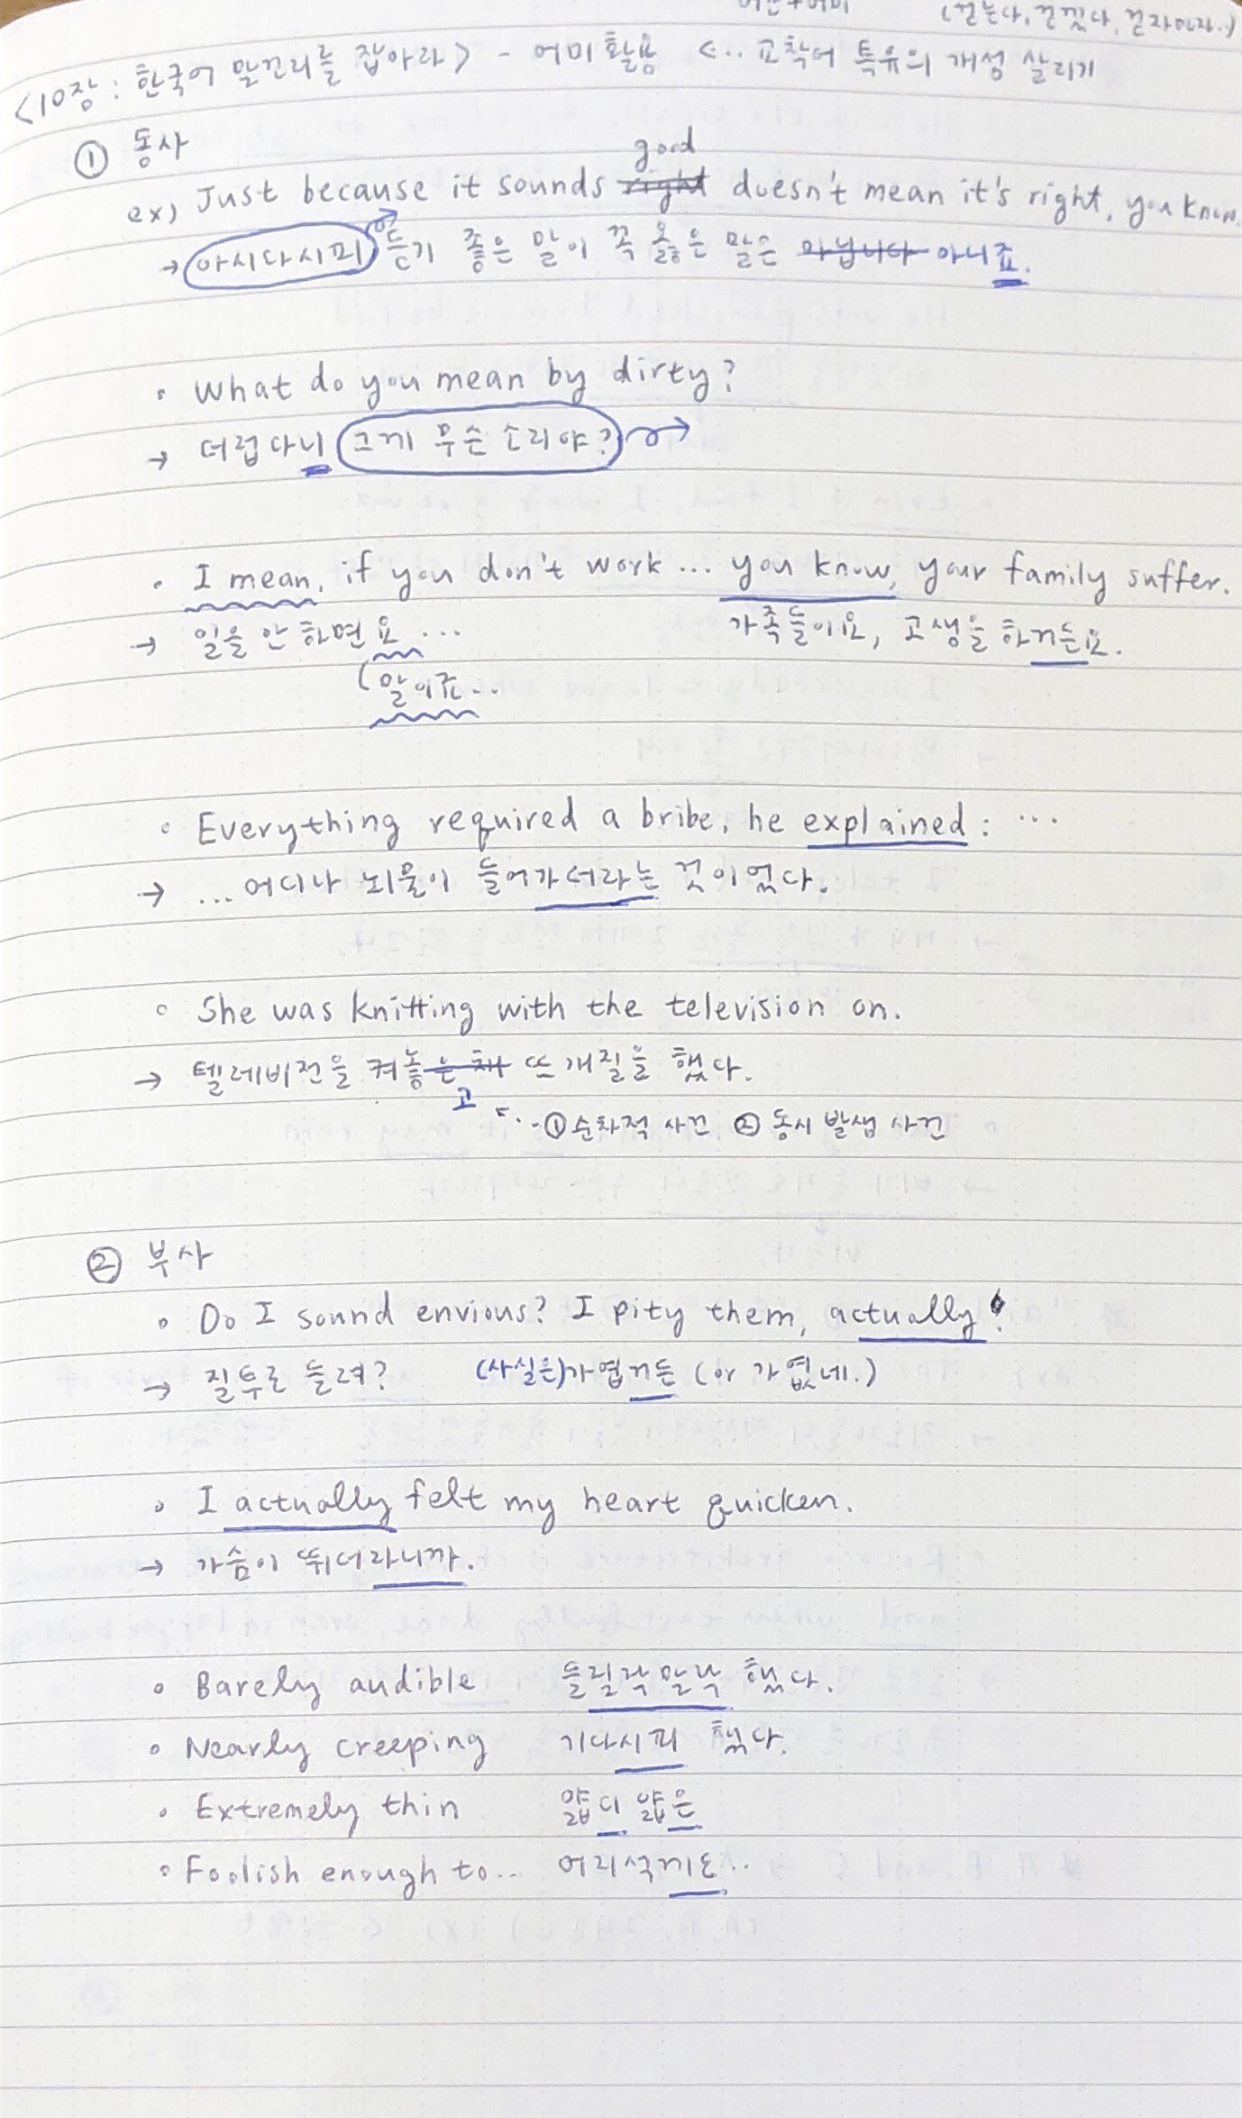 어간+어미 (걷는다, 걷겠다, 걷자마자..)
<10장 : 한국어 말꼬리를 잡아라> - 어미 활용 <·· 교착어 특유의 개성 살리기
① 동사
good
ex) Just because it sounds right doesn't mean it's right, you know.
→ 아시다시피 듣기 좋은 말이 꼭 옳은 말은 아닙니다 아니죠.
• What do you mean by dirty?
→ 더럽다니 그게 무슨 소리야?
• I mean, if you don't work ... you know, your family suffer.
→ 일을 안 하면요 ... 가족들이요, 고생을 하거든요.
(말이죠...
• Everything required a bribe, he explained : ...
→ ...어디나 뇌물이 들어가서라는 것이었다.
• She was knitting with the television on.
→ 텔레비전을 켜놓은 채 뜨개질을 했다.
고 ①순차적 사건 ② 동시 발생 사건
② 부사
• Do I sound envious? I pity them, actually!
→ 질투로 들려? (사실은)가엽거든 (or 가엾네.)
• I actually felt my heart quicken.
→ 가슴이 뛰더라니까.
• Barely audible 들릴락말락 했다.
• Nearly creeping 기다시피 했다.
• Extremely thin 얇디 얇은
• Foolish enough to... 어리석게도..